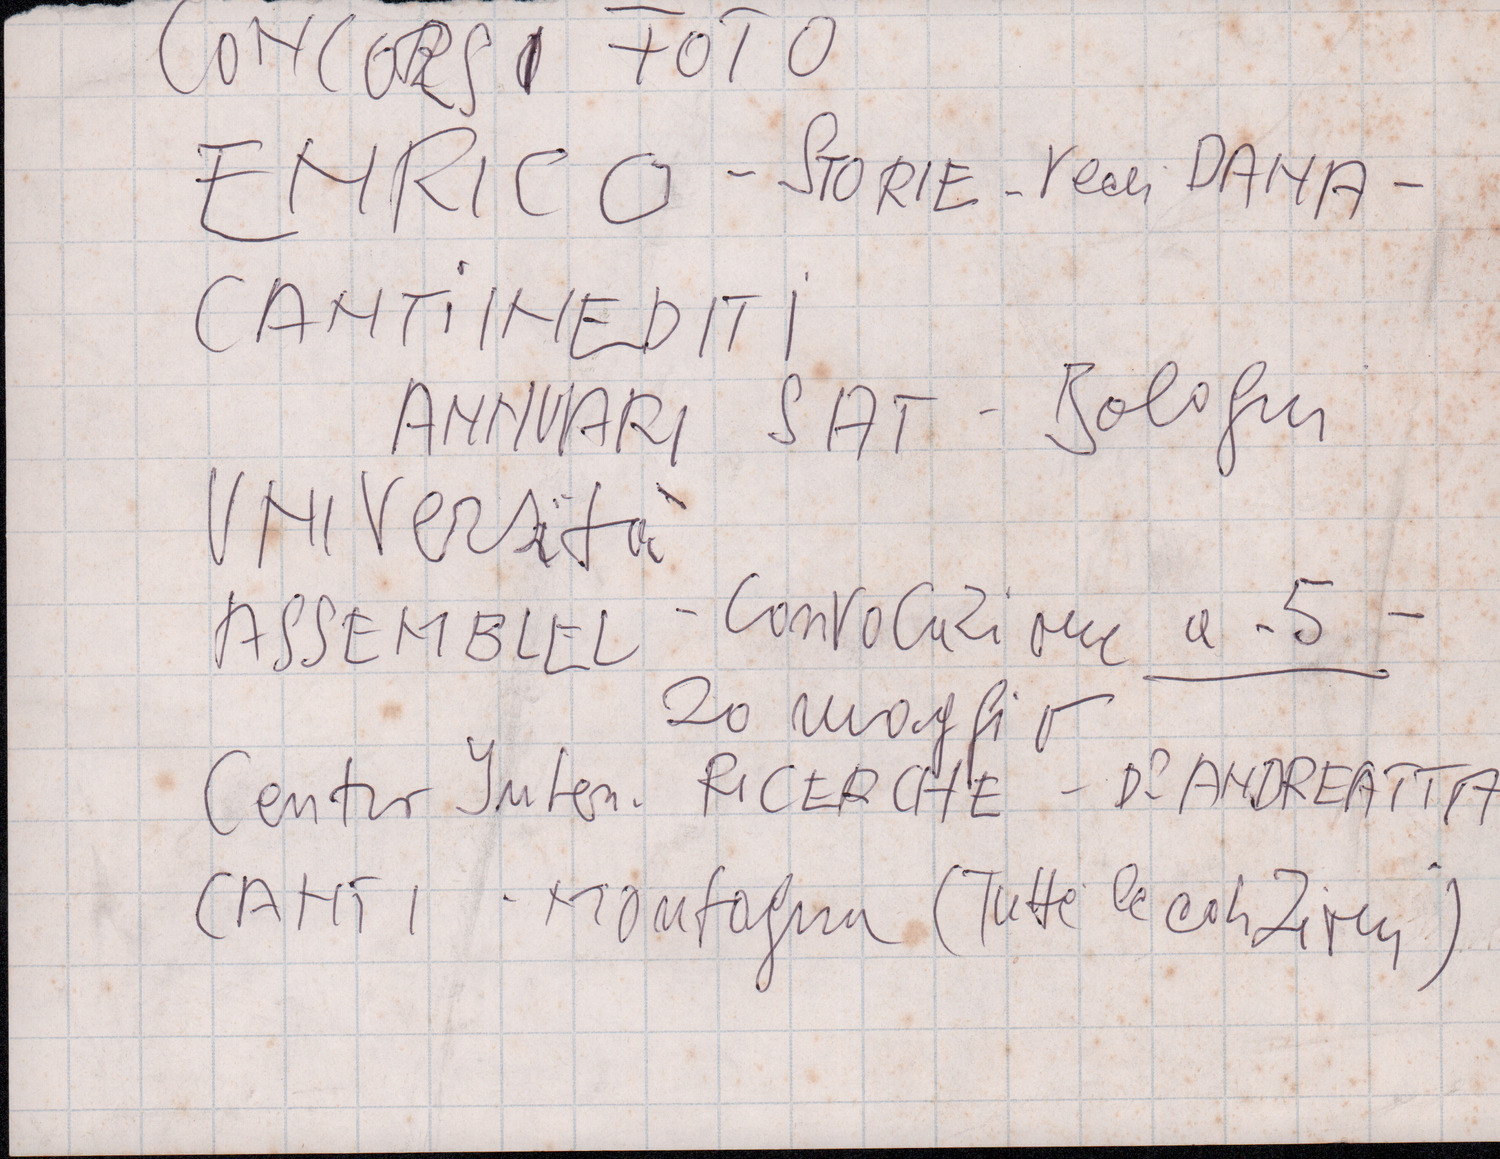 CONCORSI FOTO
ENRICO - STORIE - vedi DANA -
CANTI INEDITI
ANNUARI SAT - Bologna
UNIVersità
ASSEMBLEE - Convocazione a - 5 -
20 maggio
Centro Inten. RICERCHE - Dº ANDREATTA
CANTI - Montagna (Tutte le canzoni)